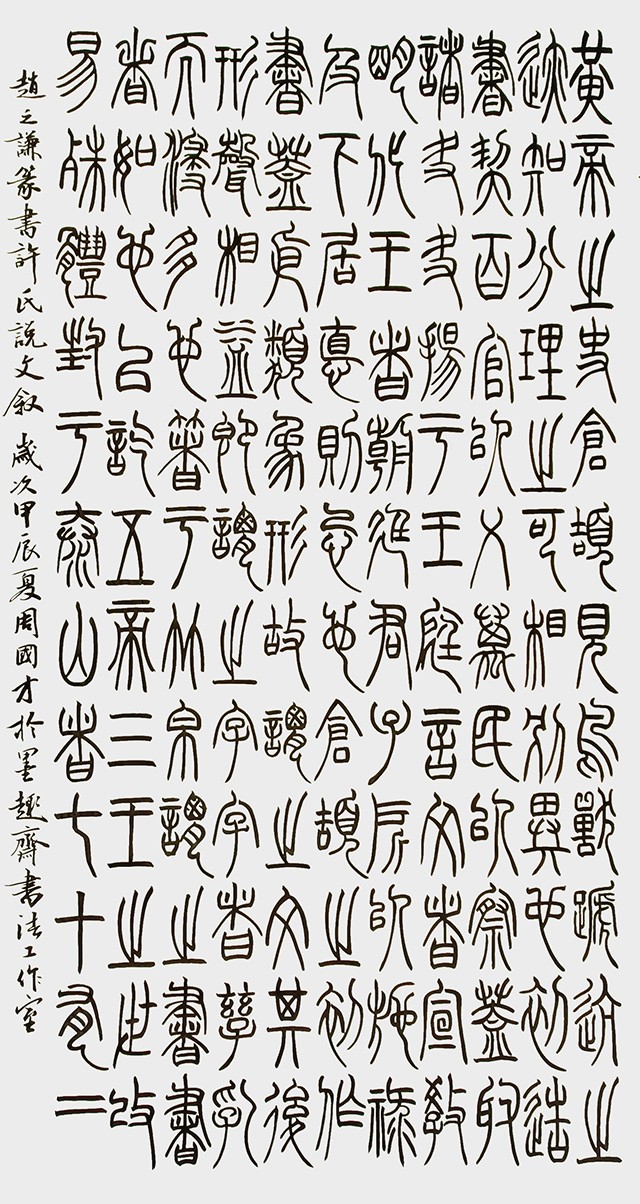 黃帝之史倉頡見鳥獸蹏迒之
迹知分理之可相別異也初造
書契百官以乂萬民以察蓋取
諸夬夬揚于王庭言文者宣教
朙化王者朝廷君子所以施祿
及下居悳則忌也倉頡之初作
書蓋依類象形故謂之文其後
形聲相益即謂之字字者孳乳
而浸多也著于竹帛謂之書書
者如也以訖五帝三王之世改
易殊體封于泰山者七十有二
趙之謙篆書許氏說文敘 歲次甲辰夏周國才於墨趣齋書法工作室